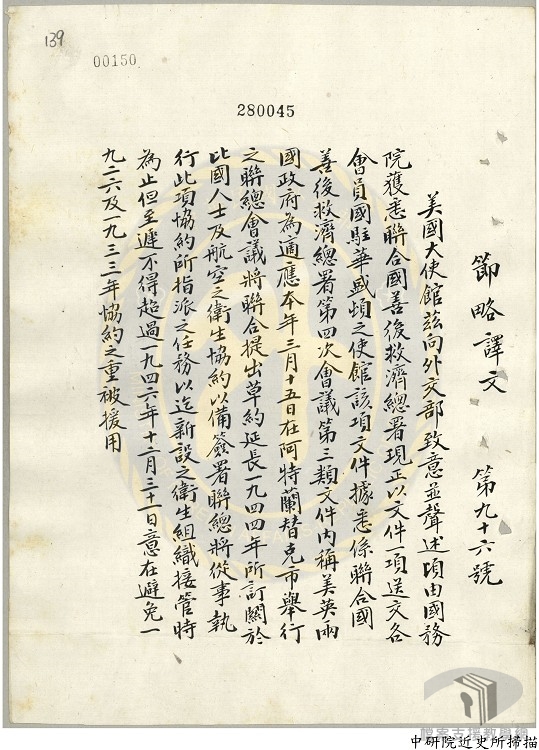 139
00150
280045
節略譯文 第九十六號
美國大使館茲向外交部致意並聲述頃由國務
院獲悉聯合國善後救濟總署現正以文件一項送交各
會員國駐華盛頓之使館該項文件據悉係聯合國
善後救濟總署第四次會議第三類文件內稱美英兩
國政府為適應本年三月十五日在阿特蘭替克市舉行
之聯總會議將聯合提出草約延長一九四四年所訂關於
比國人士及航空之衛生協約以備簽署聯總將從事執
行此項協約所指派之任務以迄新設之衛生組織接管時
為止但至遲不得超過一九四六年十二月三十一日意在避免一
九二六及一九三三年協約之重被援用
檔案支援教學網
中研院近史所掃描